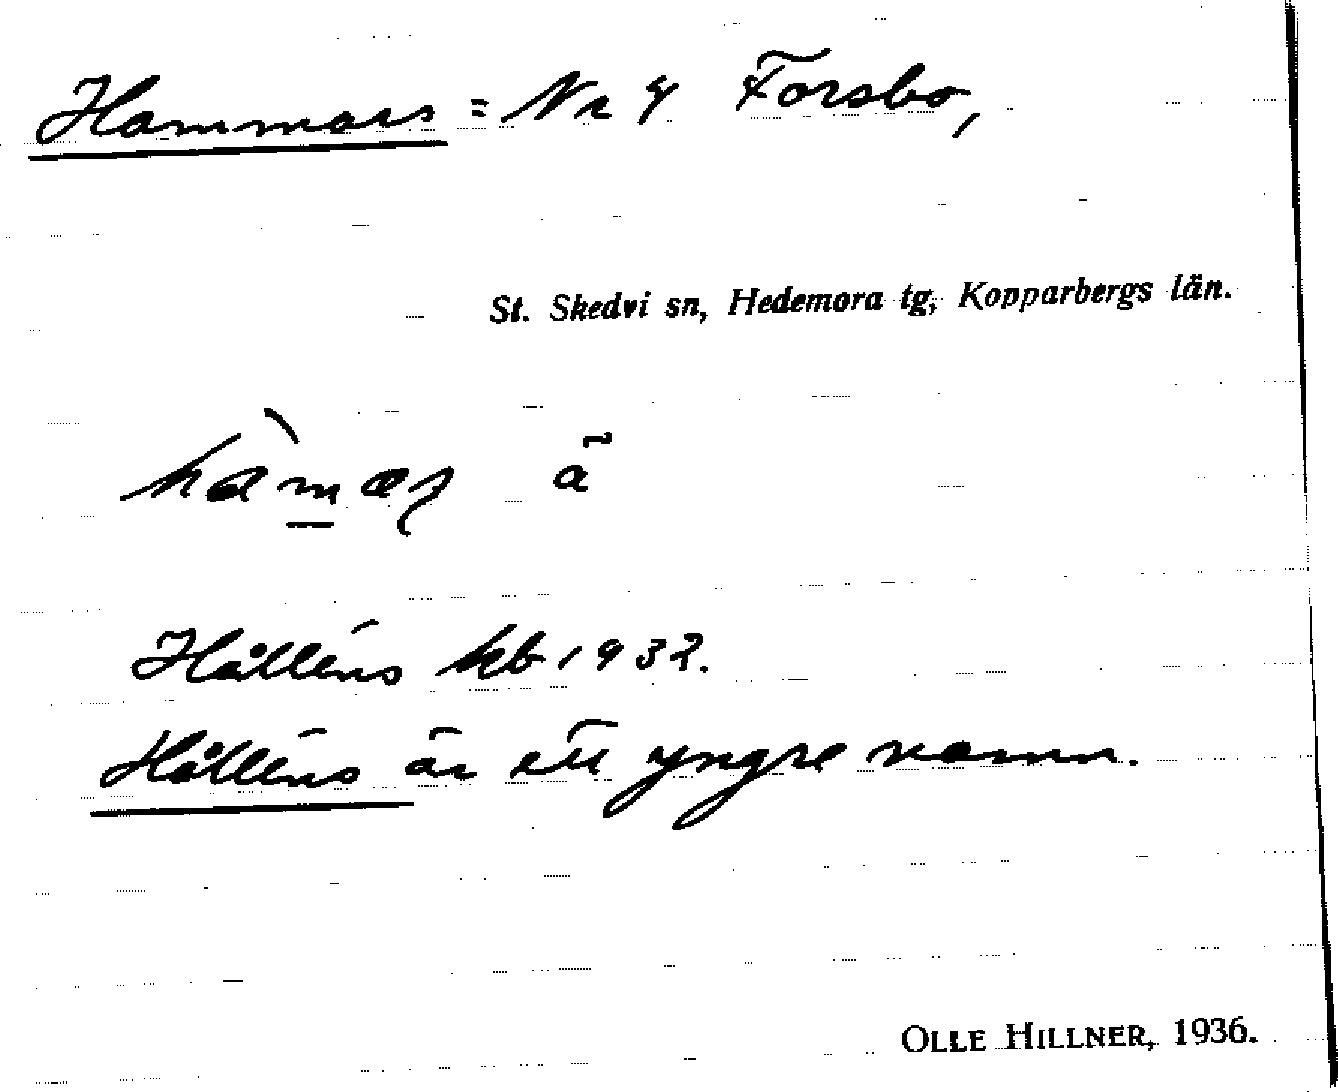 Hammars = Nr 4 Forsbo,
St. Skedvi sn, Hedemora tg, Kopparbergs län.
hàmaʂ ã
Hålléns kb 1932.
Hålléns är ett yngre namn.
OLLE HILLNER, 1936.